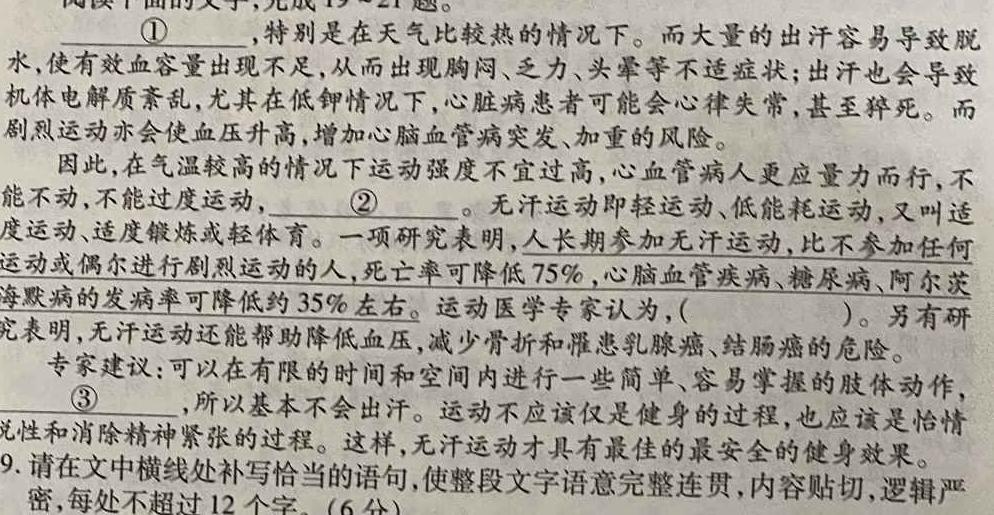 阅读下面的文字,完成19~21题。
①,特别是在天气比较热的情况下。而大量的出汗容易导致脱
水,使有效血容量出现不足,从而出现胸闷、乏力、头晕等不适症状;出汗也会导致
机体电解质紊乱,尤其在低钾情况下,心脏病患者可能会心律失常,甚至猝死。而
剧烈运动亦会使血压升高,增加心脑血管病突发、加重的风险。
因此,在气温较高的情况下运动强度不宜过高,心血管病人更应量力而行,不
能不动,不能过度运动,②。无汗运动即轻运动、低能耗运动,又叫适
度运动、适度锻炼或轻体育。一项研究表明,人长期参加无汗运动,比不参加任何
运动或偶尔进行剧烈运动的人,死亡率可降低75%,心脑血管疾病、糖尿病、阿尔茨
海默病的发病率可降低约35%左右。运动医学专家认为,( )。另有研
究表明,无汗运动还能帮助降低血压,减少骨折和罹患乳腺癌、结肠癌的危险。
专家建议:可以在有限的时间和空间内进行一些简单、容易掌握的肢体动作,
③,所以基本不会出汗。运动不应该仅是健身的过程,也应该是怡情
悦性和消除精神紧张的过程。这样,无汗运动才具有最佳的最安全的健身效果。
9.请在文中横线处补写恰当的语句,使整段文字语意完整连贯,内容贴切,逻辑严
密,每处不超过12个字。(6分)